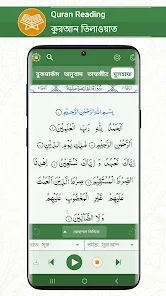 Quran Reading
কুরআন তিলাওয়াত
বুকমার্কস অনুবাদ তাফসীর মুসহাফ
بِسْمِ اللَّهِ الرَّحْمَٰنِ الرَّحِيمِ ۝١
الْحَمْدُ لِلَّهِ رَبِّ الْعَالَمِينَ ۝٢
الرَّحْمَٰنِ الرَّحِيمِ ۝٣ مَالِكِ يَوْمِ الدِّينِ ۝٤
إِيَّاكَ نَعْبُدُ وَإِيَّاكَ نَسْتَعِينُ ۝٥ اهْدِنَا
الصِّرَاطَ الْمُسْتَقِيمَ ۝٦ صِرَاطَ الَّذِينَ أَنْعَمْتَ
عَلَيْهِمْ غَيْرِ الْمَغْضُوبِ عَلَيْهِمْ
وَلَا الضَّالِّينَ ۝٧